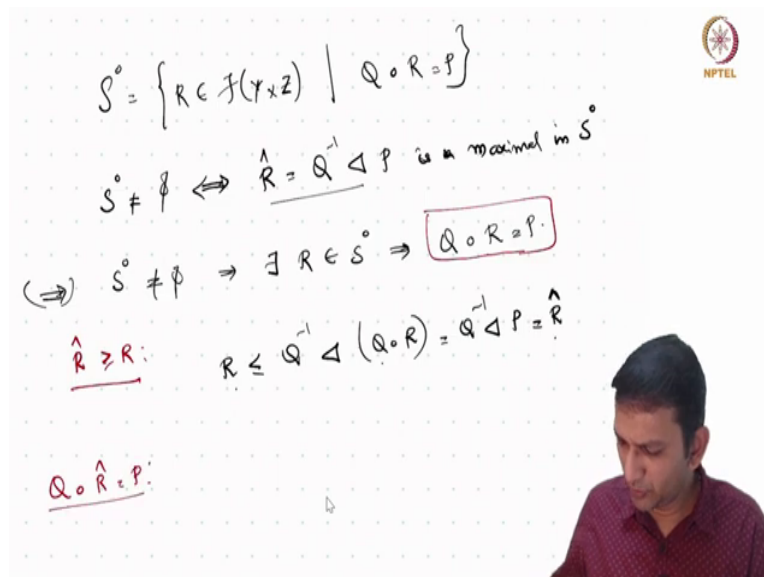 S° = { R ∈ F(Y×Z) | Q ∘ R = P }
NPTEL
S° ≠ ϕ ⇔ R̂ = Q⁻¹ ◁ P is a maximal in S°
(⇒) S° ≠ ϕ ⇒ ∃ R ∈ S° ⇒ Q ∘ R = P.
R̂ ≥ R: R ≤ Q⁻¹ ◁ (Q ∘ R) = Q⁻¹ ◁ P = R̂
Q ∘ R̂ = P: